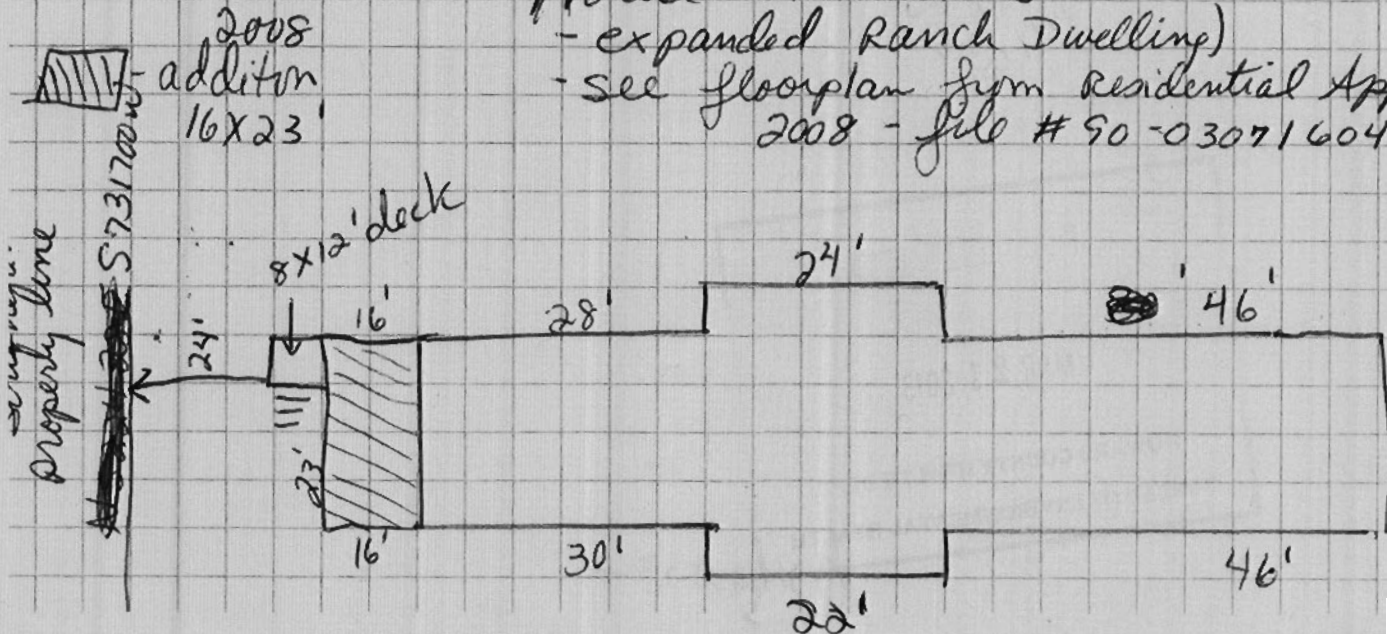 2008
addition
16X23'
- expanded Ranch Dwelling)
- See floorplan from Residential App
2008 - file # 50-03071604
property line
S7231700W
24'
8X12' deck
16'
28'
24'
' 46'
23'
16'
30'
22'
46'